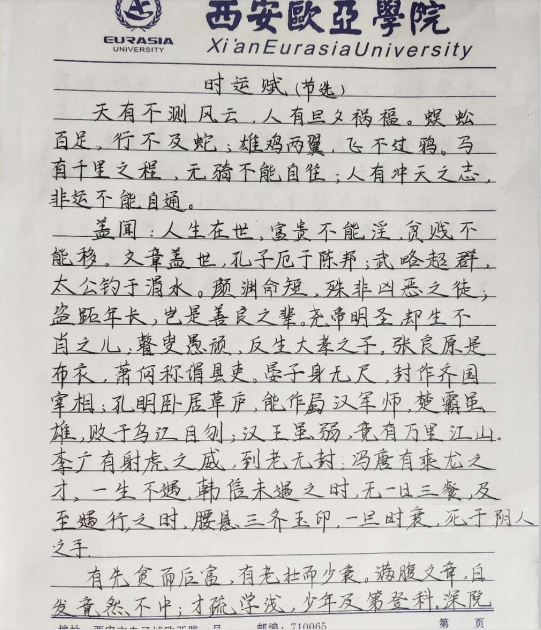 EURASIA
UNIVERSITY
西安歐亞學院
Xi'anEurasiaUniversity
时运赋(节选)
天有不测风云，人有旦夕祸福。蜈蚣
百足，行不及蛇；雄鸡两翼，飞不过鸦。马
有千里之程，无骑不能自往；人有冲天之志，
非运不能自通。
盖闻：人生在世，富贵不能淫，贫贱不
能移。文章盖世，孔子厄于陈邦；武略超群，
太公钓于渭水。颜渊命短，殊非凶恶之徒；
盗跖年长，岂是善良之辈。尧帝明圣，却生不
肖之儿，瞽叟愚顽，反生大孝之子。张良原是
布衣，萧何称谓县吏。晏子身无尺，封作齐国
宰相；孔明卧居草庐，能作蜀汉军师，楚霸虽
雄，败于乌江自刎；汉王虽弱，竟有万里江山.
李广有射虎之威，到老无封；冯唐有乘龙之
才，一生不遇，韩信未遇之时，无一日三餐，及
至遇行之时，腰悬三齐玉印，一旦时衰，死于阴人
之手.
有先贫而后富，有老壮而少衰。满腹文章，白
发竟然不中；才疏学浅，少年及第登科，深院
邮编：710065
第 页